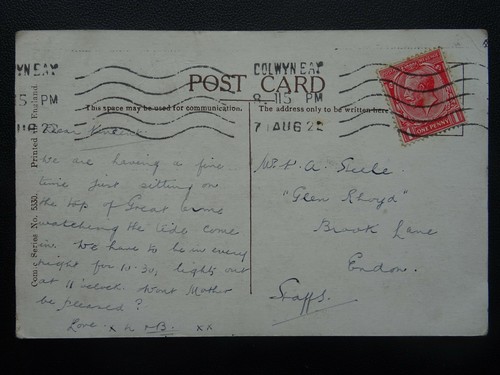 COLWYN BAY
8. 15 PM
7 AUG 22
WYN BAY
15 PM
UG 22
POST CARD
This space may be used for communication.
The address only to be written here.
ONE PENNY
Printed in England.
Com. Series No. 5333.
Dear
We are having a fine
time just sitting on
the top of Great Orme
watching the tide come
in. We have to be in every
night for 10-30, lights out
at 11 o'clock. Wont Mother
be pleased?
Love. x
xx
A. Steele.
"Glen Rhoyd"
Brook Lane
Endon.
Staffs.